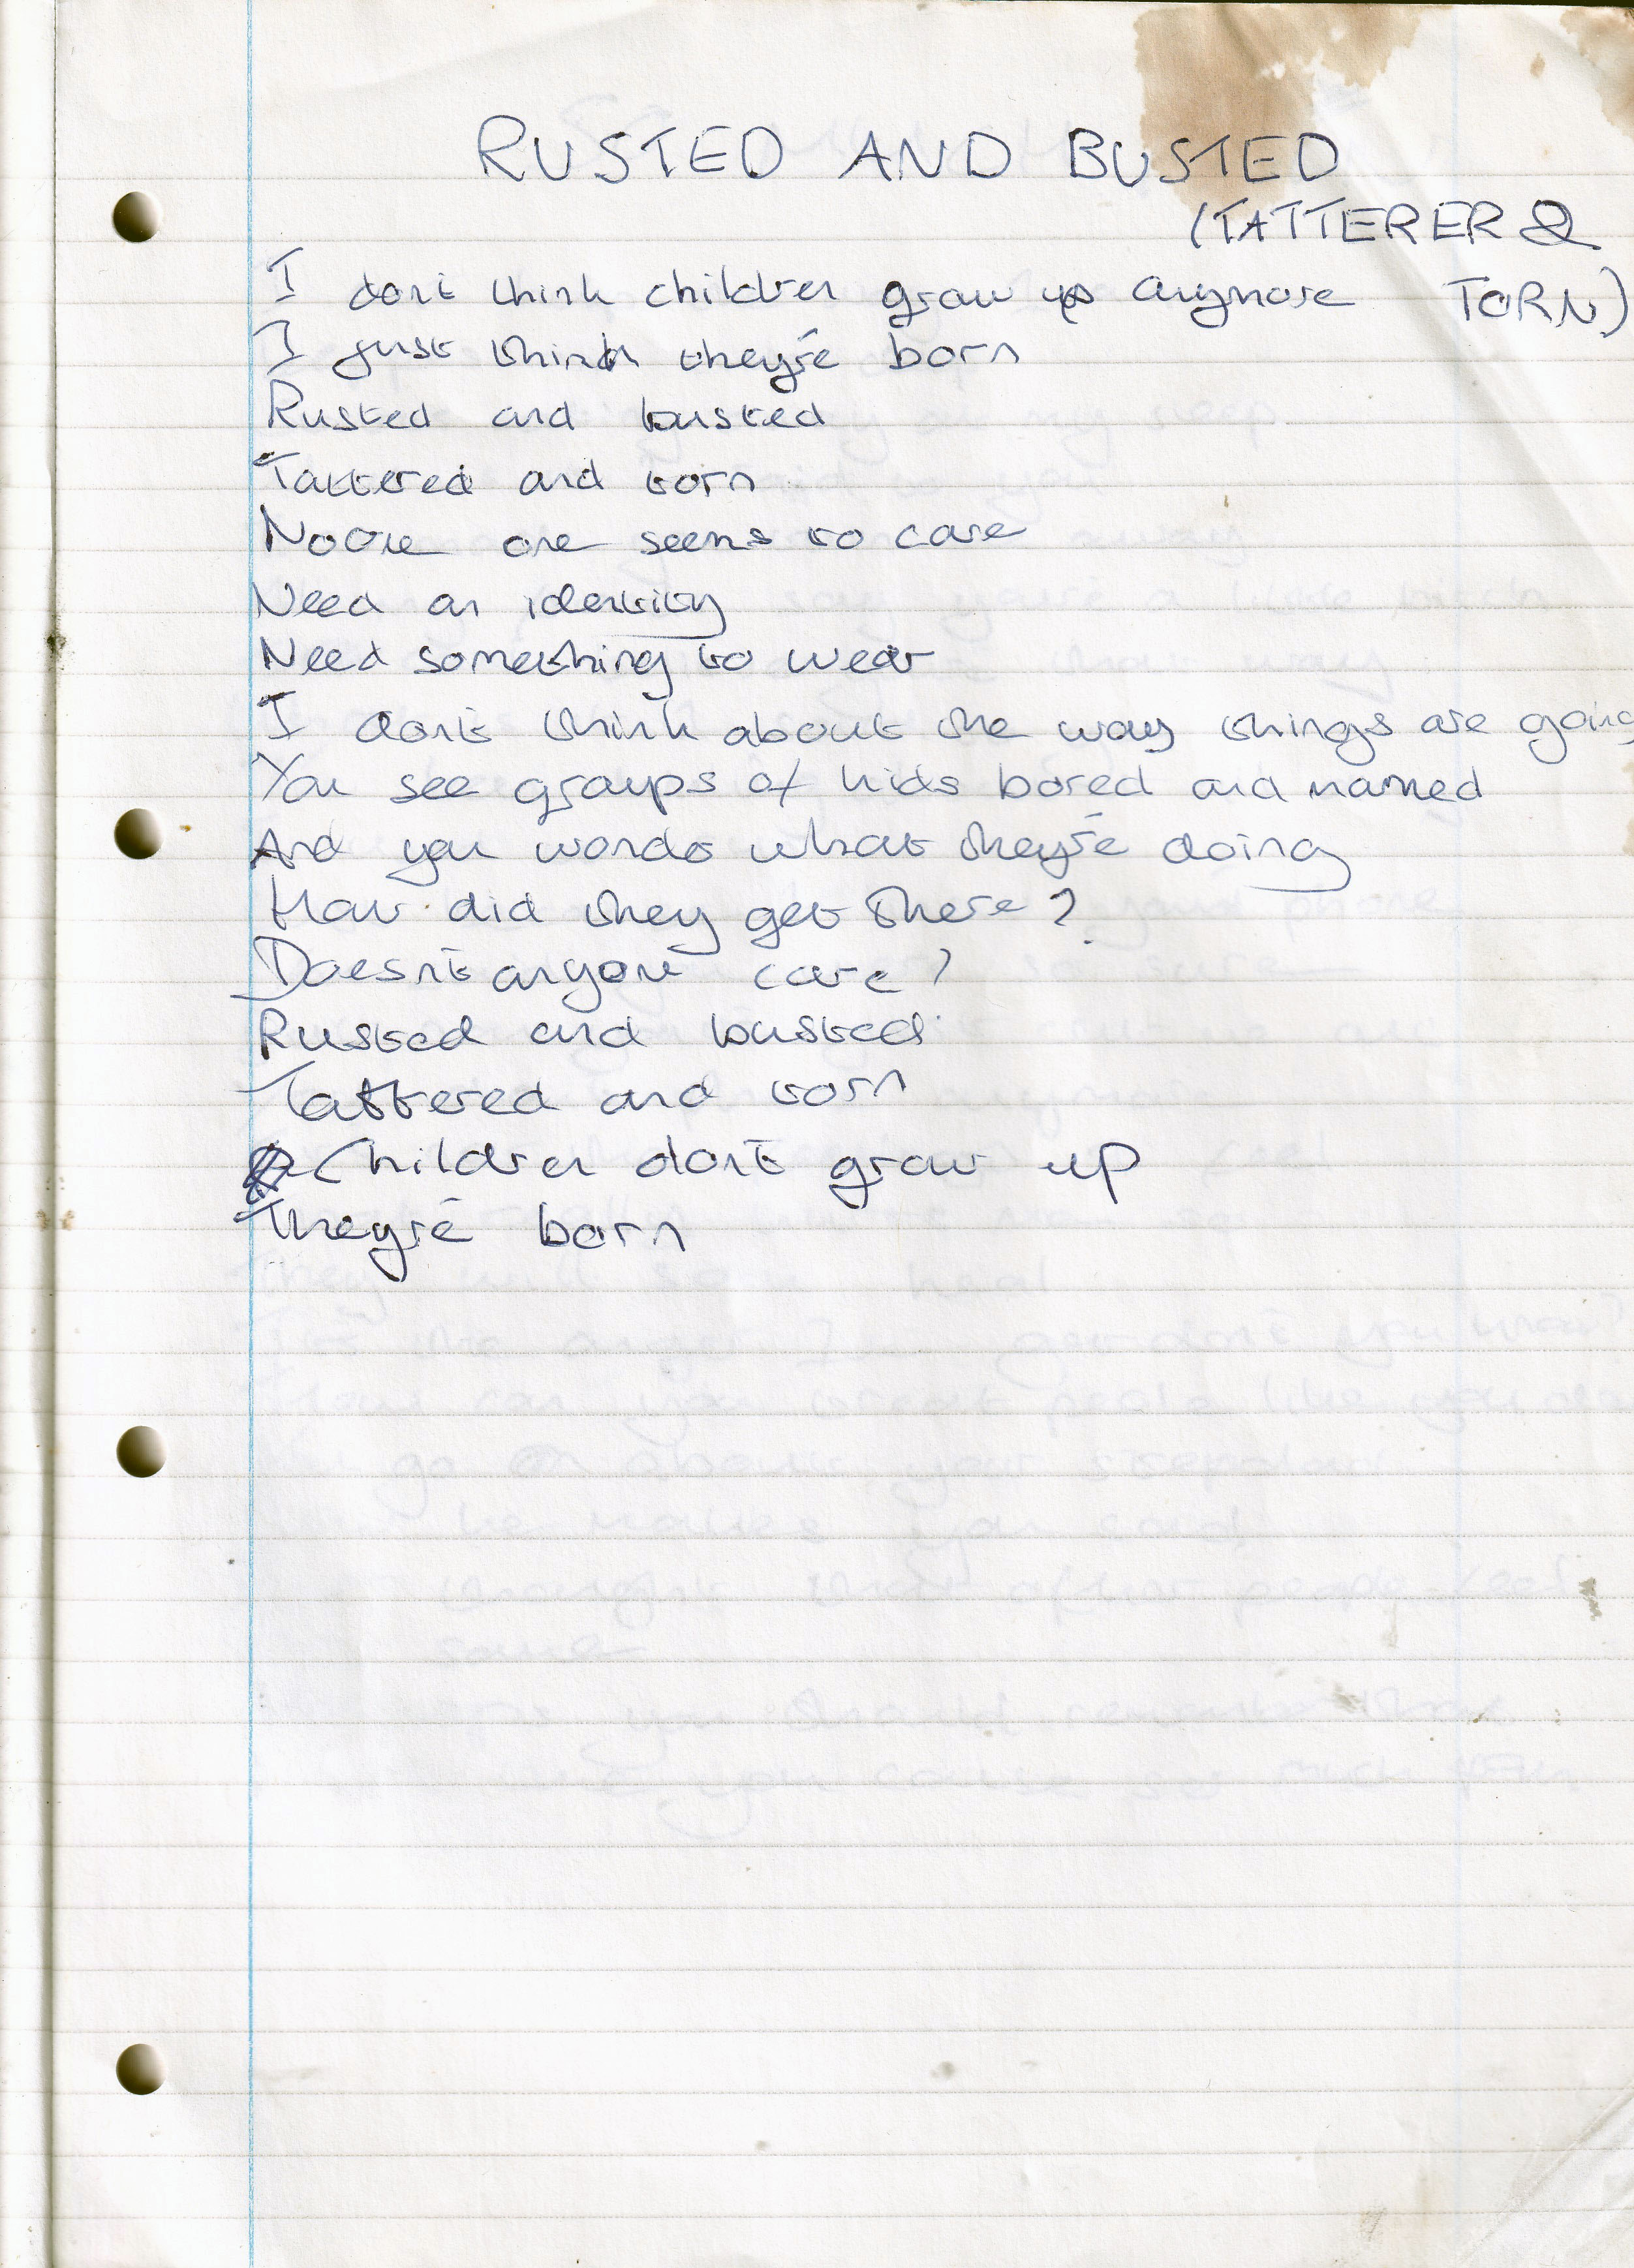 RUSTED AND BUSTED
(TATTERER &
TORN)
I don't think children grow up anymore
I just think they're born
Rusted and busted
Tattered and torn
Noone one seems to care
Need an identity
Need something to wear
I don't think about the way things are going
You see groups of kids bored and named
And you wonder what they're doing
How did they get there?
Doesn't anyone care?
Rusted and busted
Tattered and torn
Children don't grow up
They're born